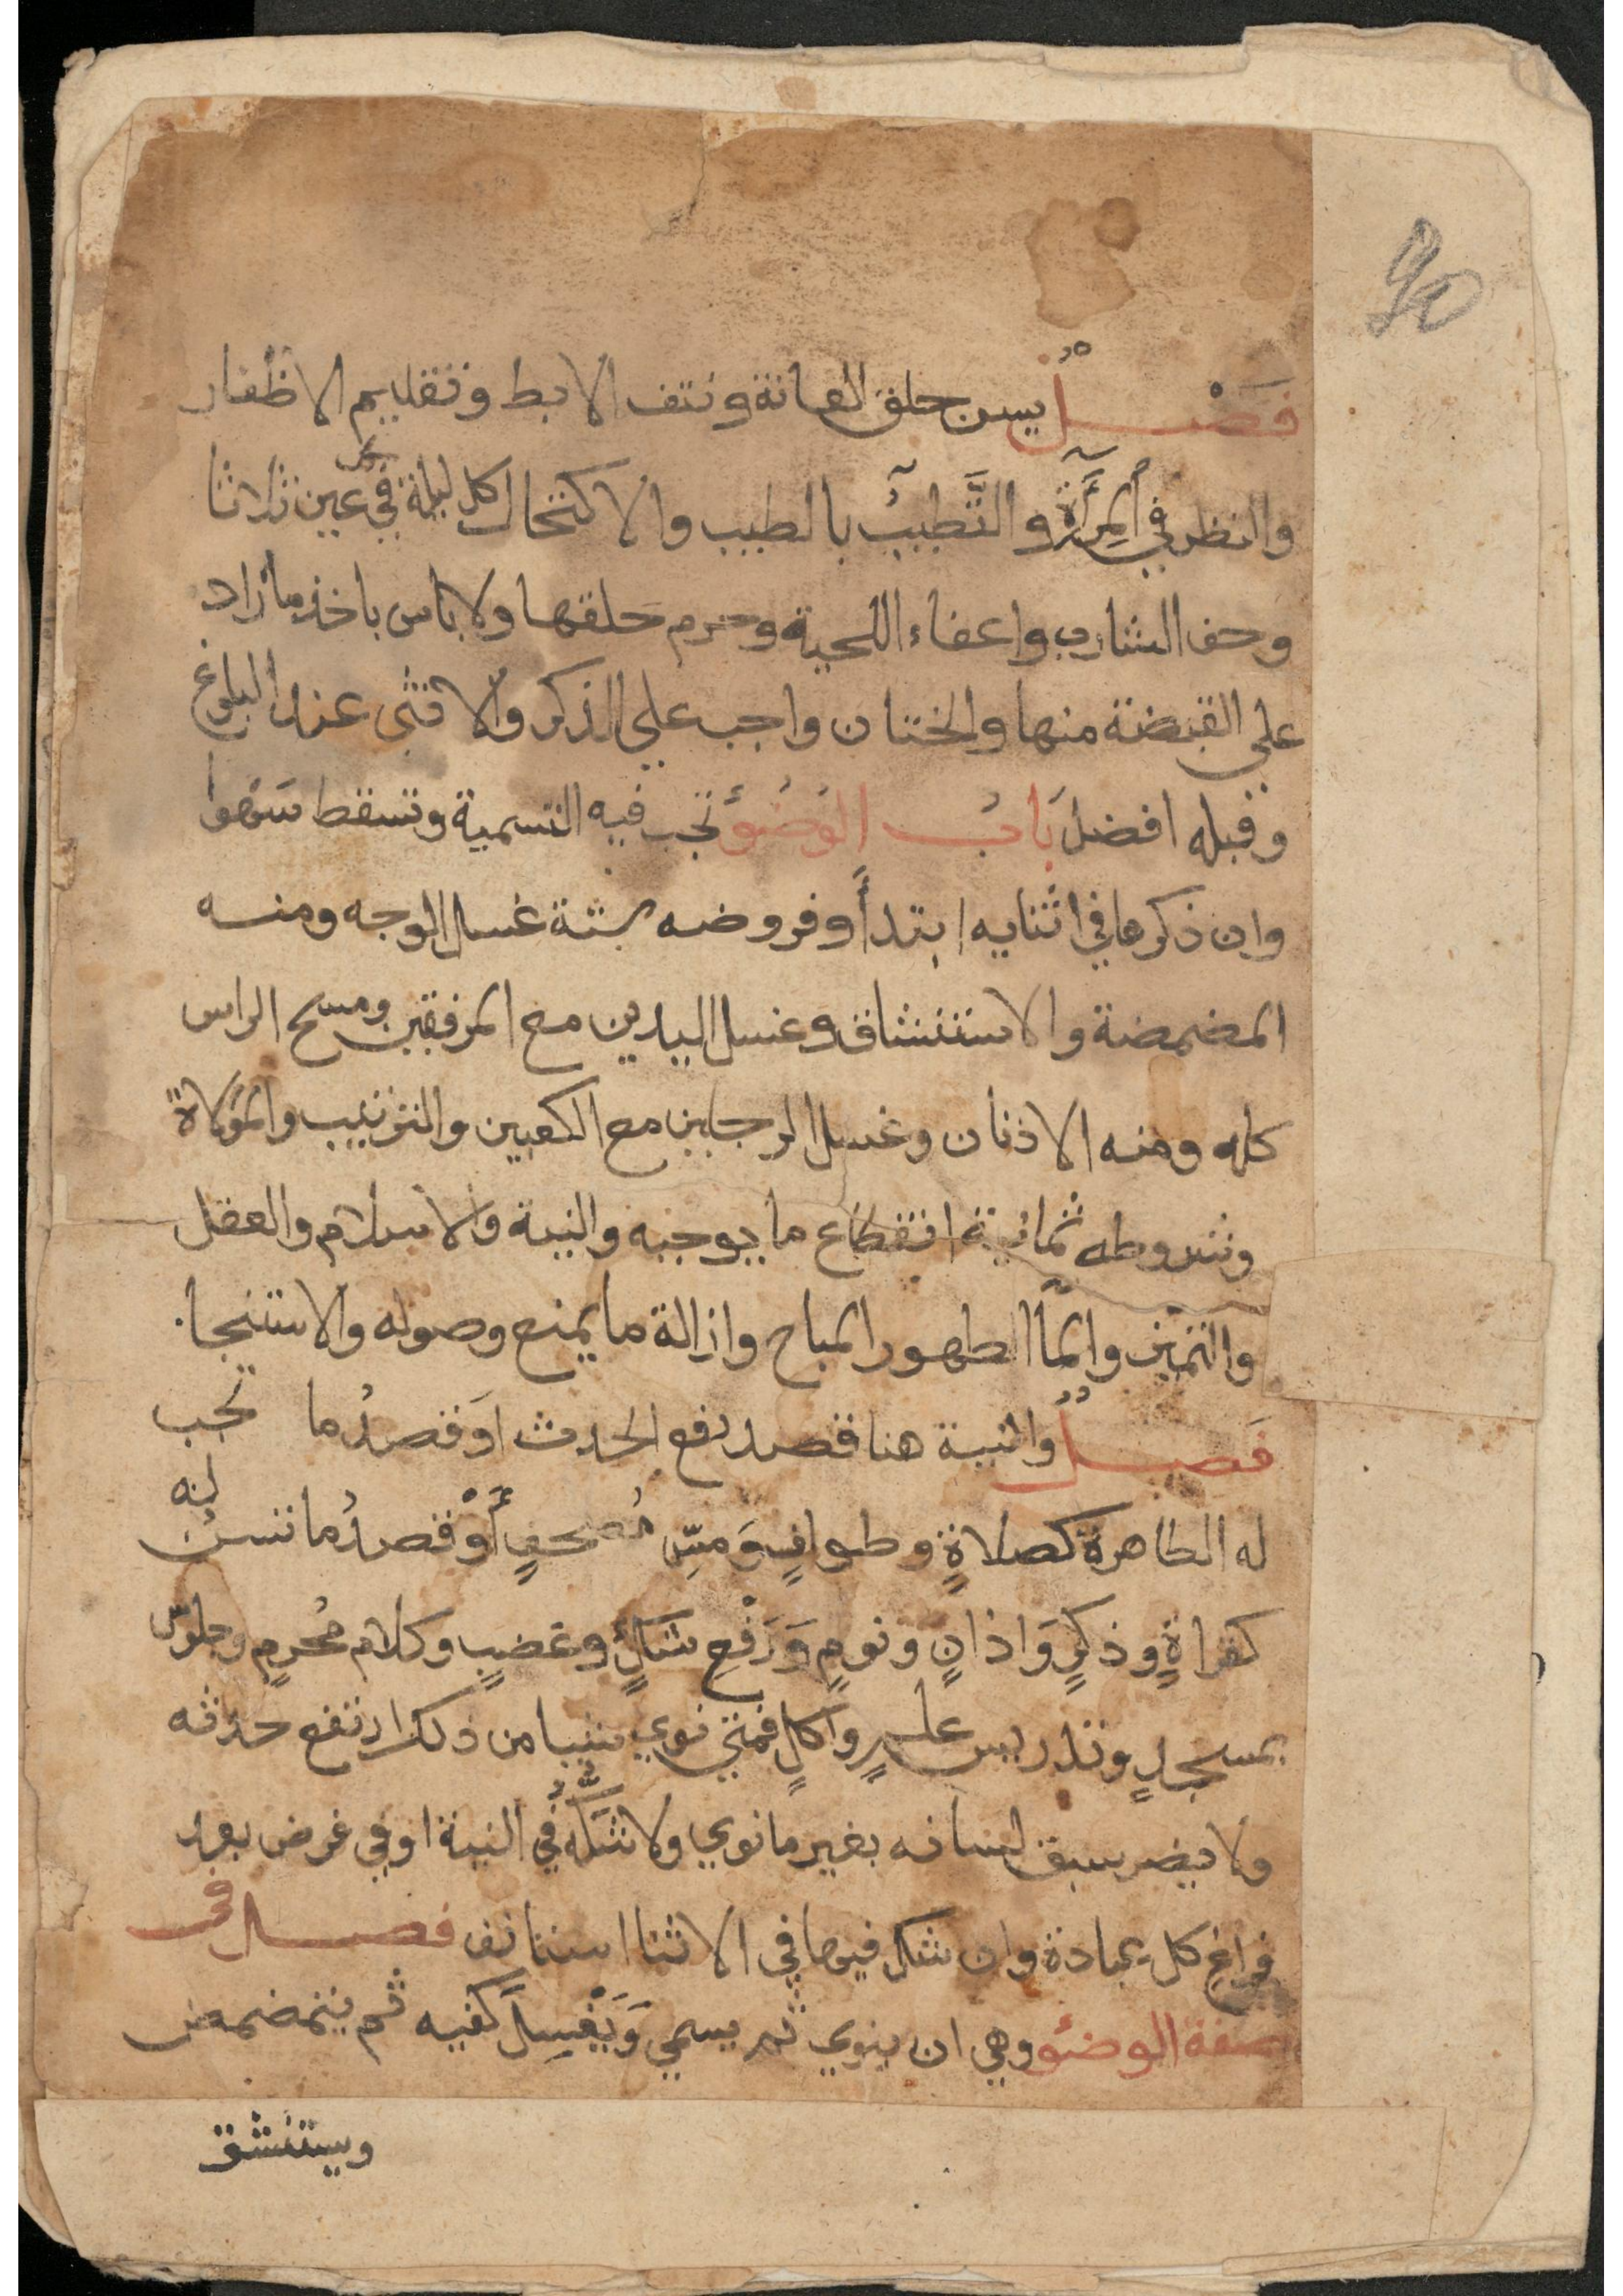 90
فَصْـــلٌ يسن حلق العانة ونتف الابط وتقليم الاظفار
والنظر في المِرْآة والتَّطيبُ بالطيب والاكتحال كل ليلة في كل عين ثلاثا
وحف الشارب واعفاء اللحية وحرم حلقها ولا باس باخذ ما زاد
علي القبضة منها والختان واجب علي الذكر والانثى عند البلوغ
وقبله افضل بَابُ الوُضُؤُ تجب فيه التسمية وتسقط سَهوا
وان ذكرها في اثنايه ابتدأ وفروضه ستة غسل الوجه ومنه
المضمضة والاستنشاق وغسل اليدين مع المرفقين ومسح الراس
كله ومنه الاذنان وغسل الرجلين مع الكعبين والترتيب والموَلاة
وشروطه ثمانية انقطاع ما يوجبه والنية والاسلام والعقل
والتميز والمآ الطهور المباح وازالة ما يمنع وصوله والاستنجا.
فَصـــلٌ والنية هنا قصد رفع الحدث اوَ قصدُ ما تجب
له الطاهرة كصلاةٍ وطوافٍ وَمسِّ مُصحفٍ أَوْ قصدُ ما تسنُ له
كقراةٍ وذكرٍ وَاذانٍ ونومٍ وَرَفْعِ شَكٍّ وغضبٍ وكلام مُحرمٍ وجلوس
بمسجدٍ وتدريس علمٍ واكلٍ فمتي نوي شيا من ذلك ارتفع حدثه
ولا يضر سبق لسانه بغير ما نوي ولا شَكُّه في النية او في فرض بعد
فراغ كل عبادة وان شك فيها في الاثنا استانف فصـــل في
صفة الوضئو وهي ان ينوي ثم يسمي وَيَغْسِلَ كفيه ثم يتمضمض
ويستنشق